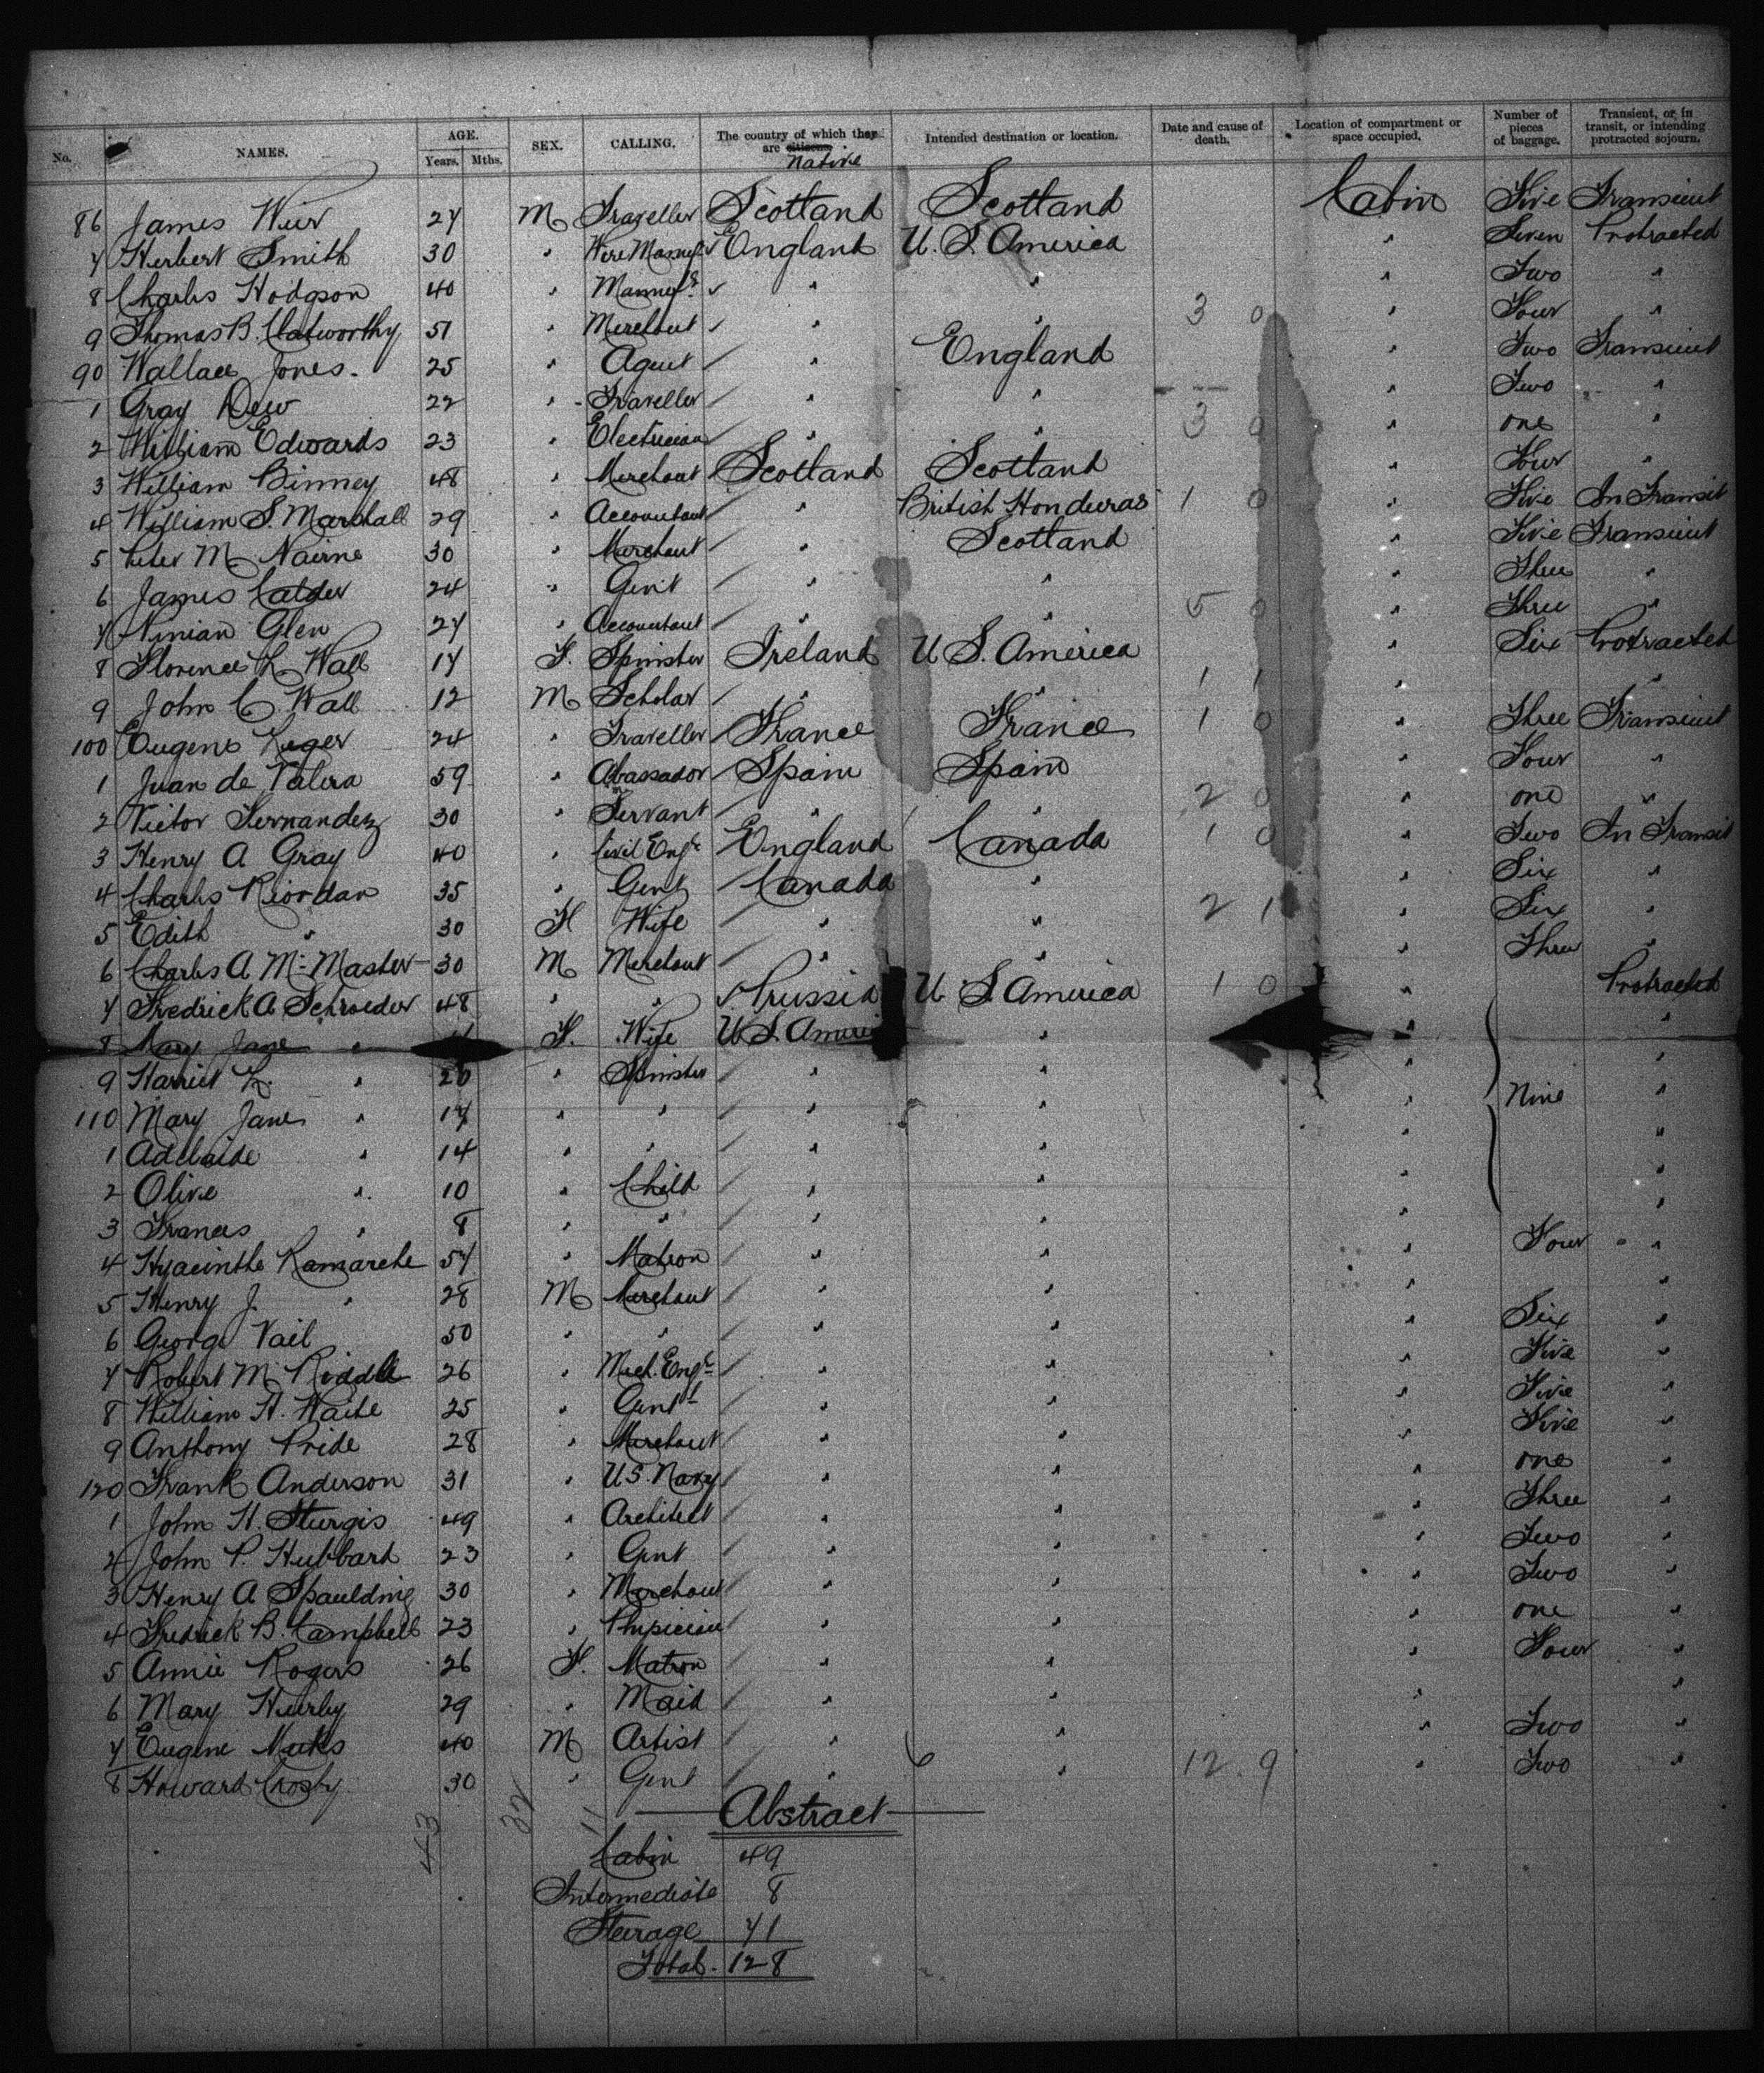 No. NAMES. AGE. Years. Mths. SEX. CALLING. The country of which they are citizens native Intended destination or location. Date and cause of death. Location of compartment or space occupied. Number of pieces of baggage. Transient, or in transit, or intending protracted sojourn.
86 James Weir 27 M Traveller Scotland Scotland Cabin Five Transient
7 Herbert Smith 30 " Wire Manuf England U.S. America " Seven Protracted
8 Charles Hodgson 40 " Manufr " " " Two "
9 Thomas B. Clatworthy 51 " Merchant " " 3 0 " Four "
90 Wallace Jones 25 " Agent " England " Two Transient
1 Gray Dew 22 " Traveller " " " Two "
2 William Edwards 23 " Electrician " " 3 0 " one "
3 William Binney 48 " Merchant Scotland Scotland " Four "
4 William S. Marshall 29 " Accountant " British Honduras 1 0 " Five In Transit
5 Peter M Nairne 30 " Merchant " Scotland " Five Transient
6 James Calder 24 " Gent " " " Three "
7 Ninian Glen 27 " Accountant " " 5 0 " Three "
8 Florence L Wall 17 F. Spinster Ireland U S. America " Six Protracted
9 John C. Wall 12 M Scholar " " 1 1 " "
100 Eugene Leger 24 " Traveller France France 1 0 " Three Transient
1 Juan de Valera 59 " Abassador Spain Spain " Four "
2 Victor Fernandez 30 " Servant " " 2 0 " one "
3 Henry A Gray 40 " Civil Engr England Canada 1 0 " Two In Transit
4 Charles Riordan 35 " Gent Canada " " Six "
5 Edith " 30 F Wife " " 2 1 " Six "
6 Charles A McMaster 30 M Merchant " " " Three "
7 Fredrick A Schroeder 48 " " Prussia U S. America 1 0 " Protracted
8 Mary Jane " F. Wife U.S. America " " "
9 Harriet L. " 20 " Spinster " " " "
110 Mary Jane " 17 " " " " " Nine "
1 Adelaide " 14 " " " " " "
2 Olive " 10 " Child " " " "
3 Frances " 8 " " " " " "
4 Hyacinthe Lamarche 57 " Matron " " " Four "
5 Henry J. " 28 M Merchant " " " "
6 George Vail 50 " " " " " Six "
7 Robert M. Riddle 26 " Mech. Engr " " " Five "
8 William H. Waite 25 " Gent " " " Five "
9 Anthony Pride 28 " Merchant " " " Five "
120 Frank Anderson 31 " U.S. Navy " " " one "
1 John H. Sturgis 49 " Architect " " " Three "
2 John P. Hubbard 23 " Gent " " " Two "
3 Henry A Spaulding 30 " Merchant " " " Two "
4 Fredrick B. Campbell 23 " Physician " " " one "
5 Annie Rogers 26 F. Matron " " " Four "
6 Mary 29 " Maid " " " "
7 Eugene Meeks 40 M Artist " " " Two "
8 Howard Crosby 30 " Gent " " 12 . 9 " Two "
43 32 11
Abstract
Cabin 49
Intermediate 8
Steerage 71
Total. 128